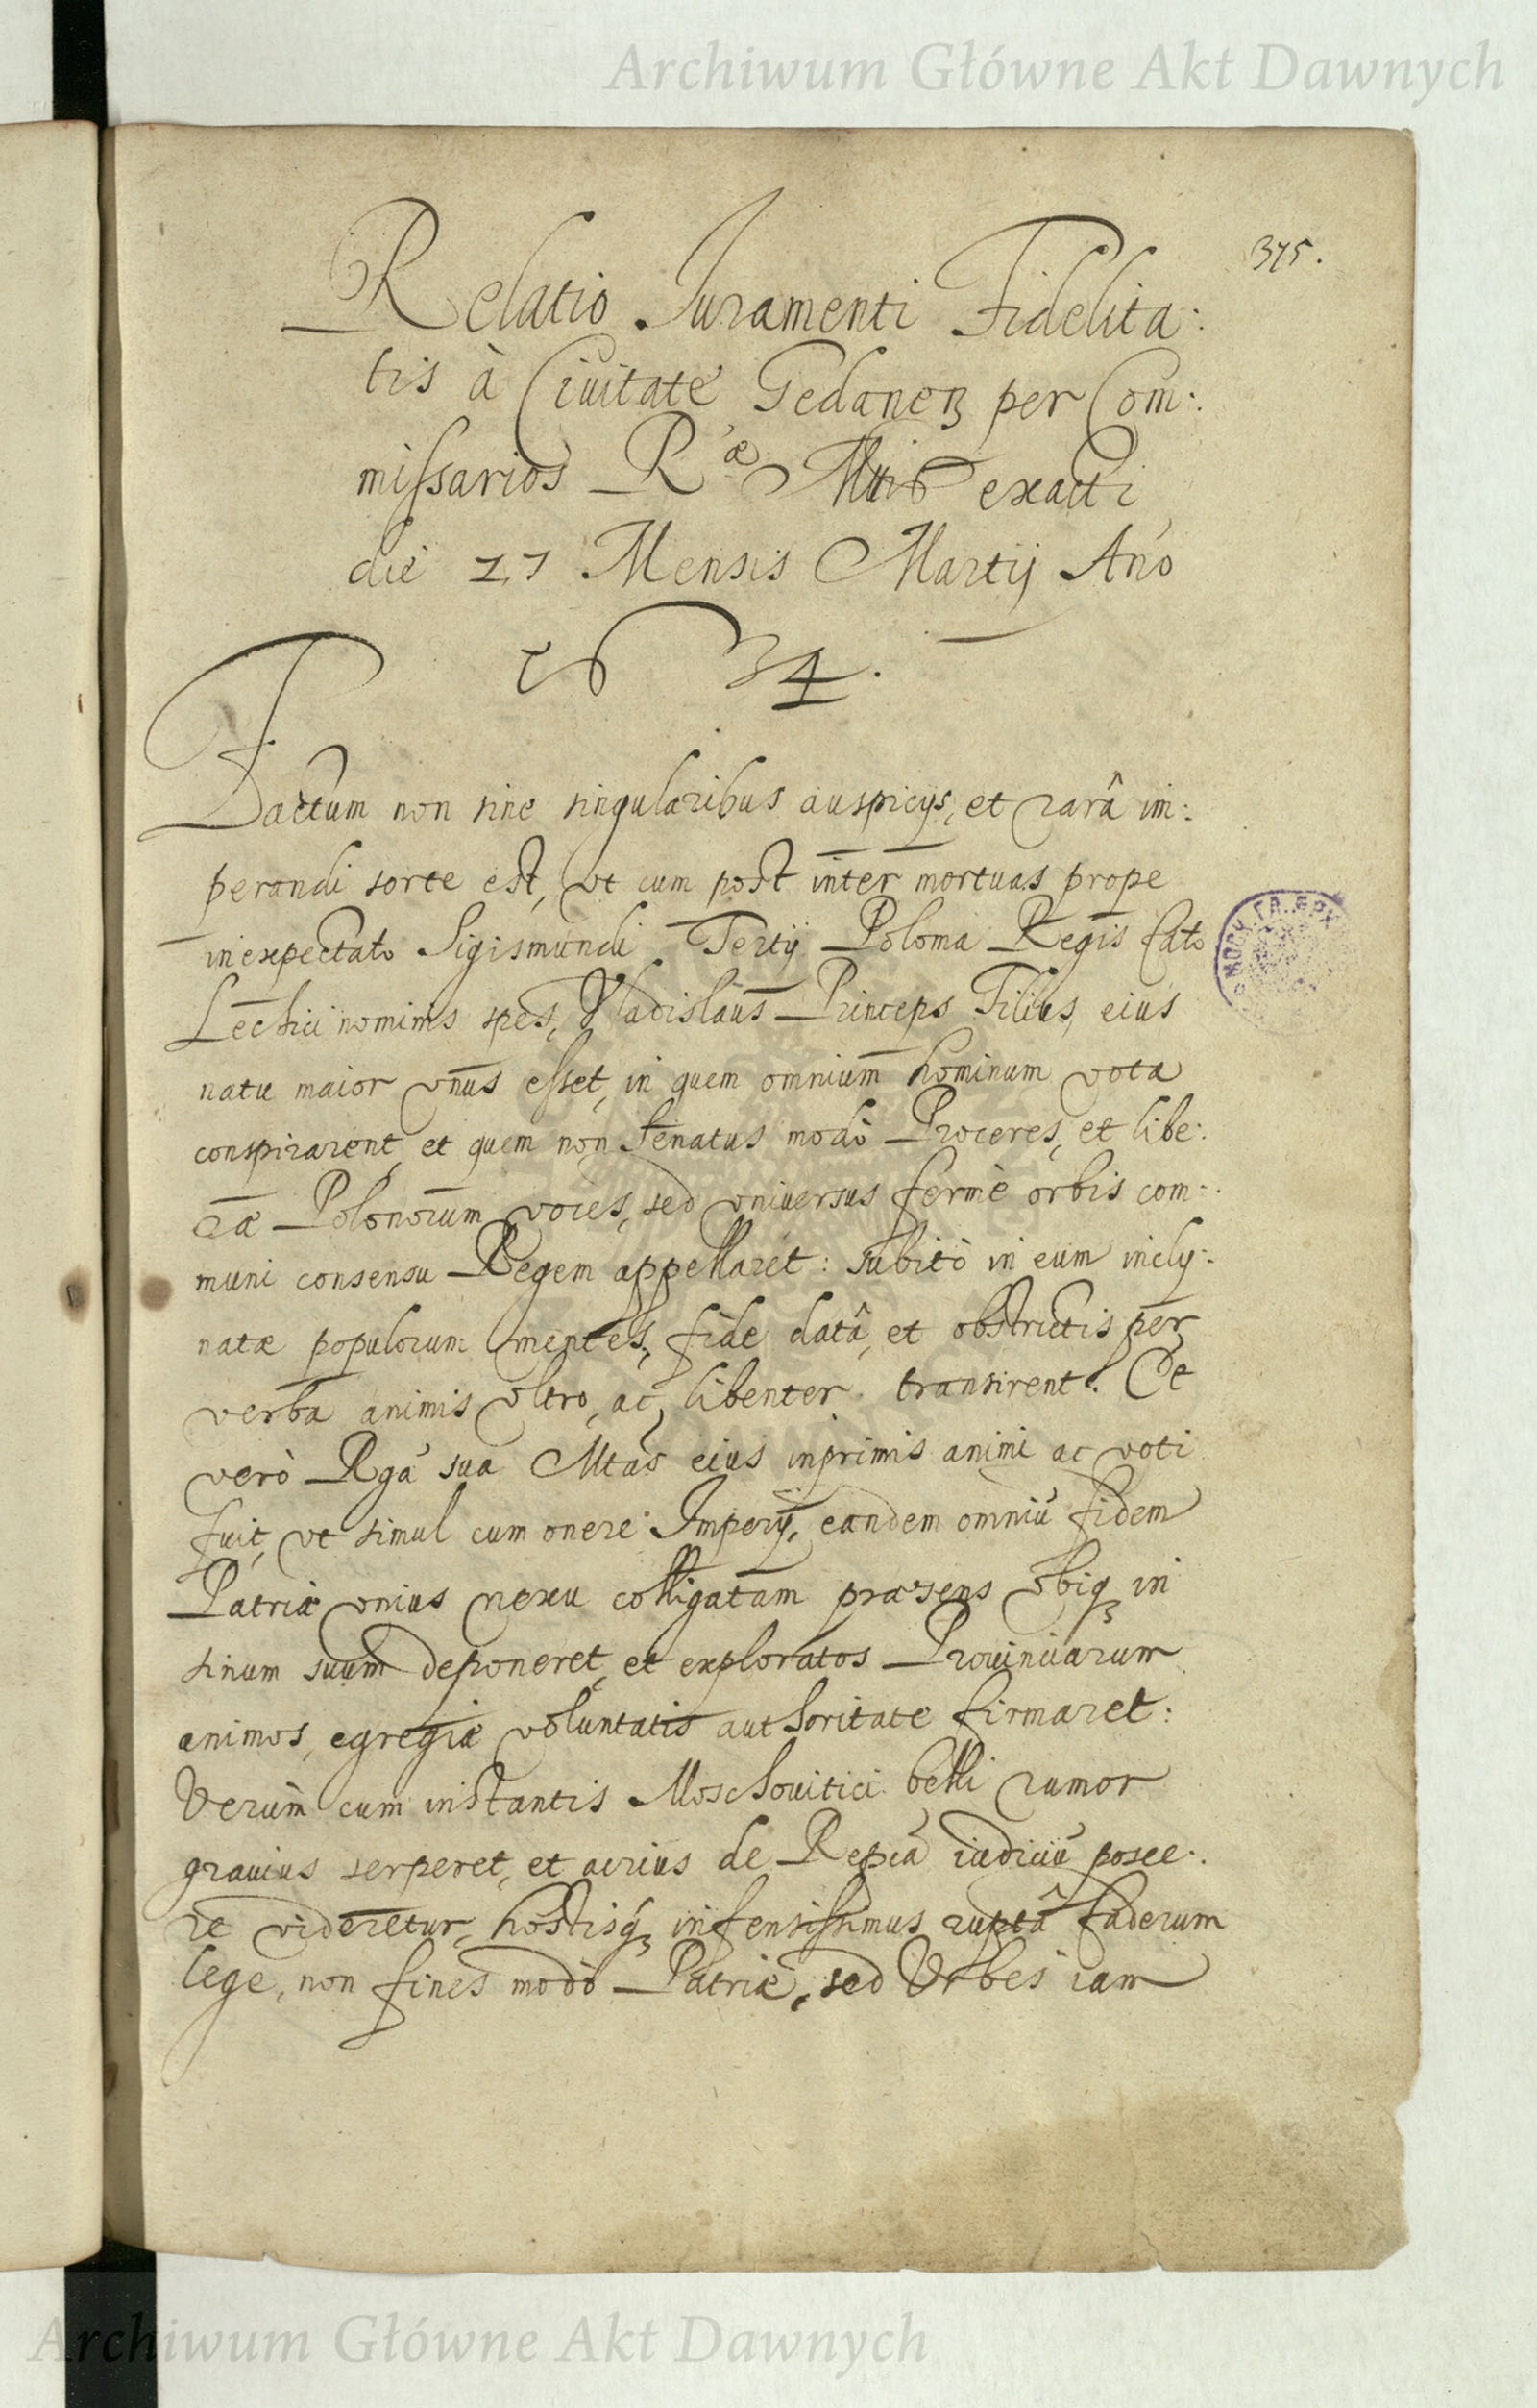 Archiwum Główne Akt Dawnych
375.
Relatio Juramenti Fidelita:
tis à Ciuitate Gedaneñ per Com:
missarios Ræ Mtis exacti
die 27 Mensis Martij Año
1634.
Factum non sine singularibus auspicijs, et rarâ im:
perandi sorte est, vt cum post inter mortuas prope
inexpectato Sigismundi Tertij Poloniæ Regis fato
Lechici nominis spes, Vladislaus Princeps Filius eius
natu maior vnus esset, in quem omnium hominum vota
conspirarent, et quem non Senatus modò Proceres, et libe:
ræ Polonorum voces, sed vniuersus fermè orbis com:
muni consensu Regem appellaret: subitò in eum incly:
natæ populorum mentes, fide datâ, et obstrictis per
verba animis vltro, ac libenter transirent. Et
verò Rga sua Mtas eius inprimis animi ac voti
fuit, vt simul cum onere Imperij, eandem omniũ fidem
Patriæ vnius nexu colligatam præsens vbiq3 in
sinum suum deponeret, et exploratos Prouinciarum
animos, egregiæ voluntatis authoritate firmaret:
Verùm cum instantis Moschouitici belli rumor
grauius serperet, et acrius de Repca iudiciũ posce:
re videretur, hostisq3 infensissimus ruptâ fæderum
lege, non fines modò Patriæ, sed Vrbes iam
Archiwum Główne Akt Dawnych